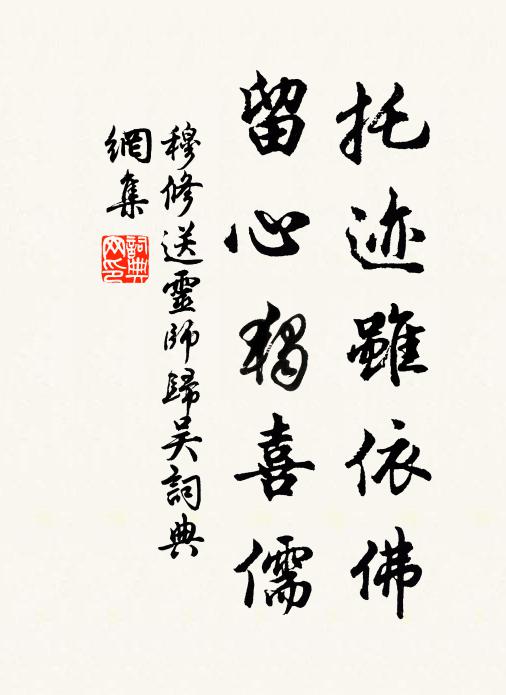 托迹雖依佛
留心獨喜儒
穆修送靈師歸吴詞典
網集
詞典網印